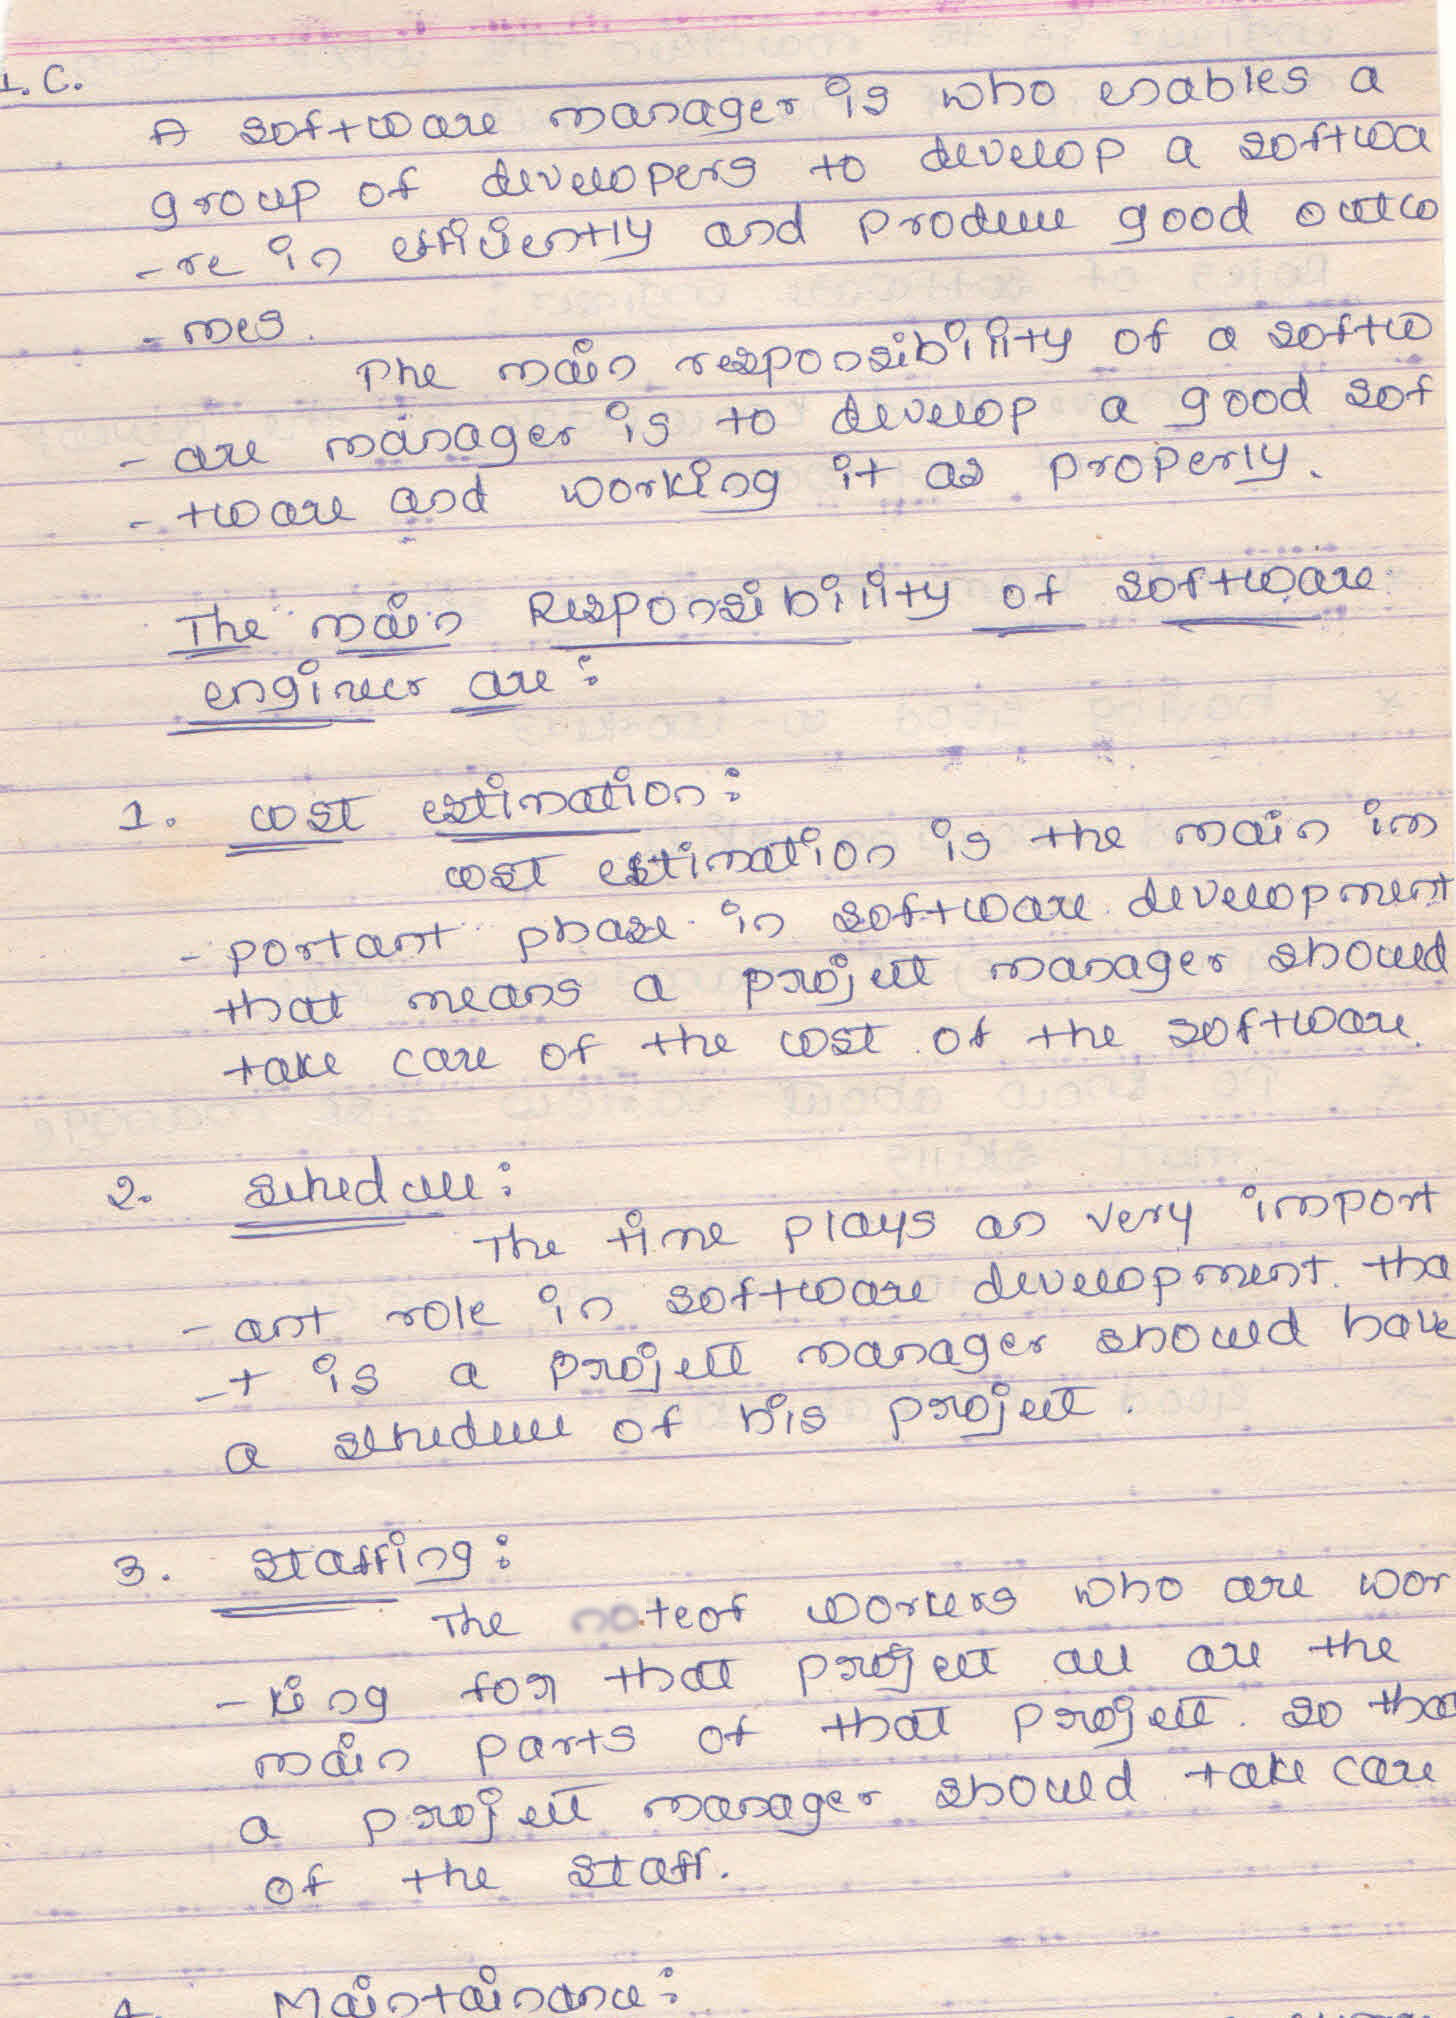 1.C.
A software manager is who enables a
group of developers to develop a softwa
-re in efficiently and produce good outco
-mes.
The main responsibility of a softw
-are manager is to develop a good sof
-tware and working it as properly.
The main Responsibility of software
engineer are:
1. cost estimation:
cost estimation is the main im
-portant phase in software development
that means a project manager should
take care of the cost of the software.
2. schedule:
The time plays an very import
-ant role in software development. tha
-t is a project manager should have
a schedule of his project.
3. staffing:
The workers who are wor
-king for that project all are the
main parts of that project. so tha
a project manager should take care
of the staff.
4. Maintainance: